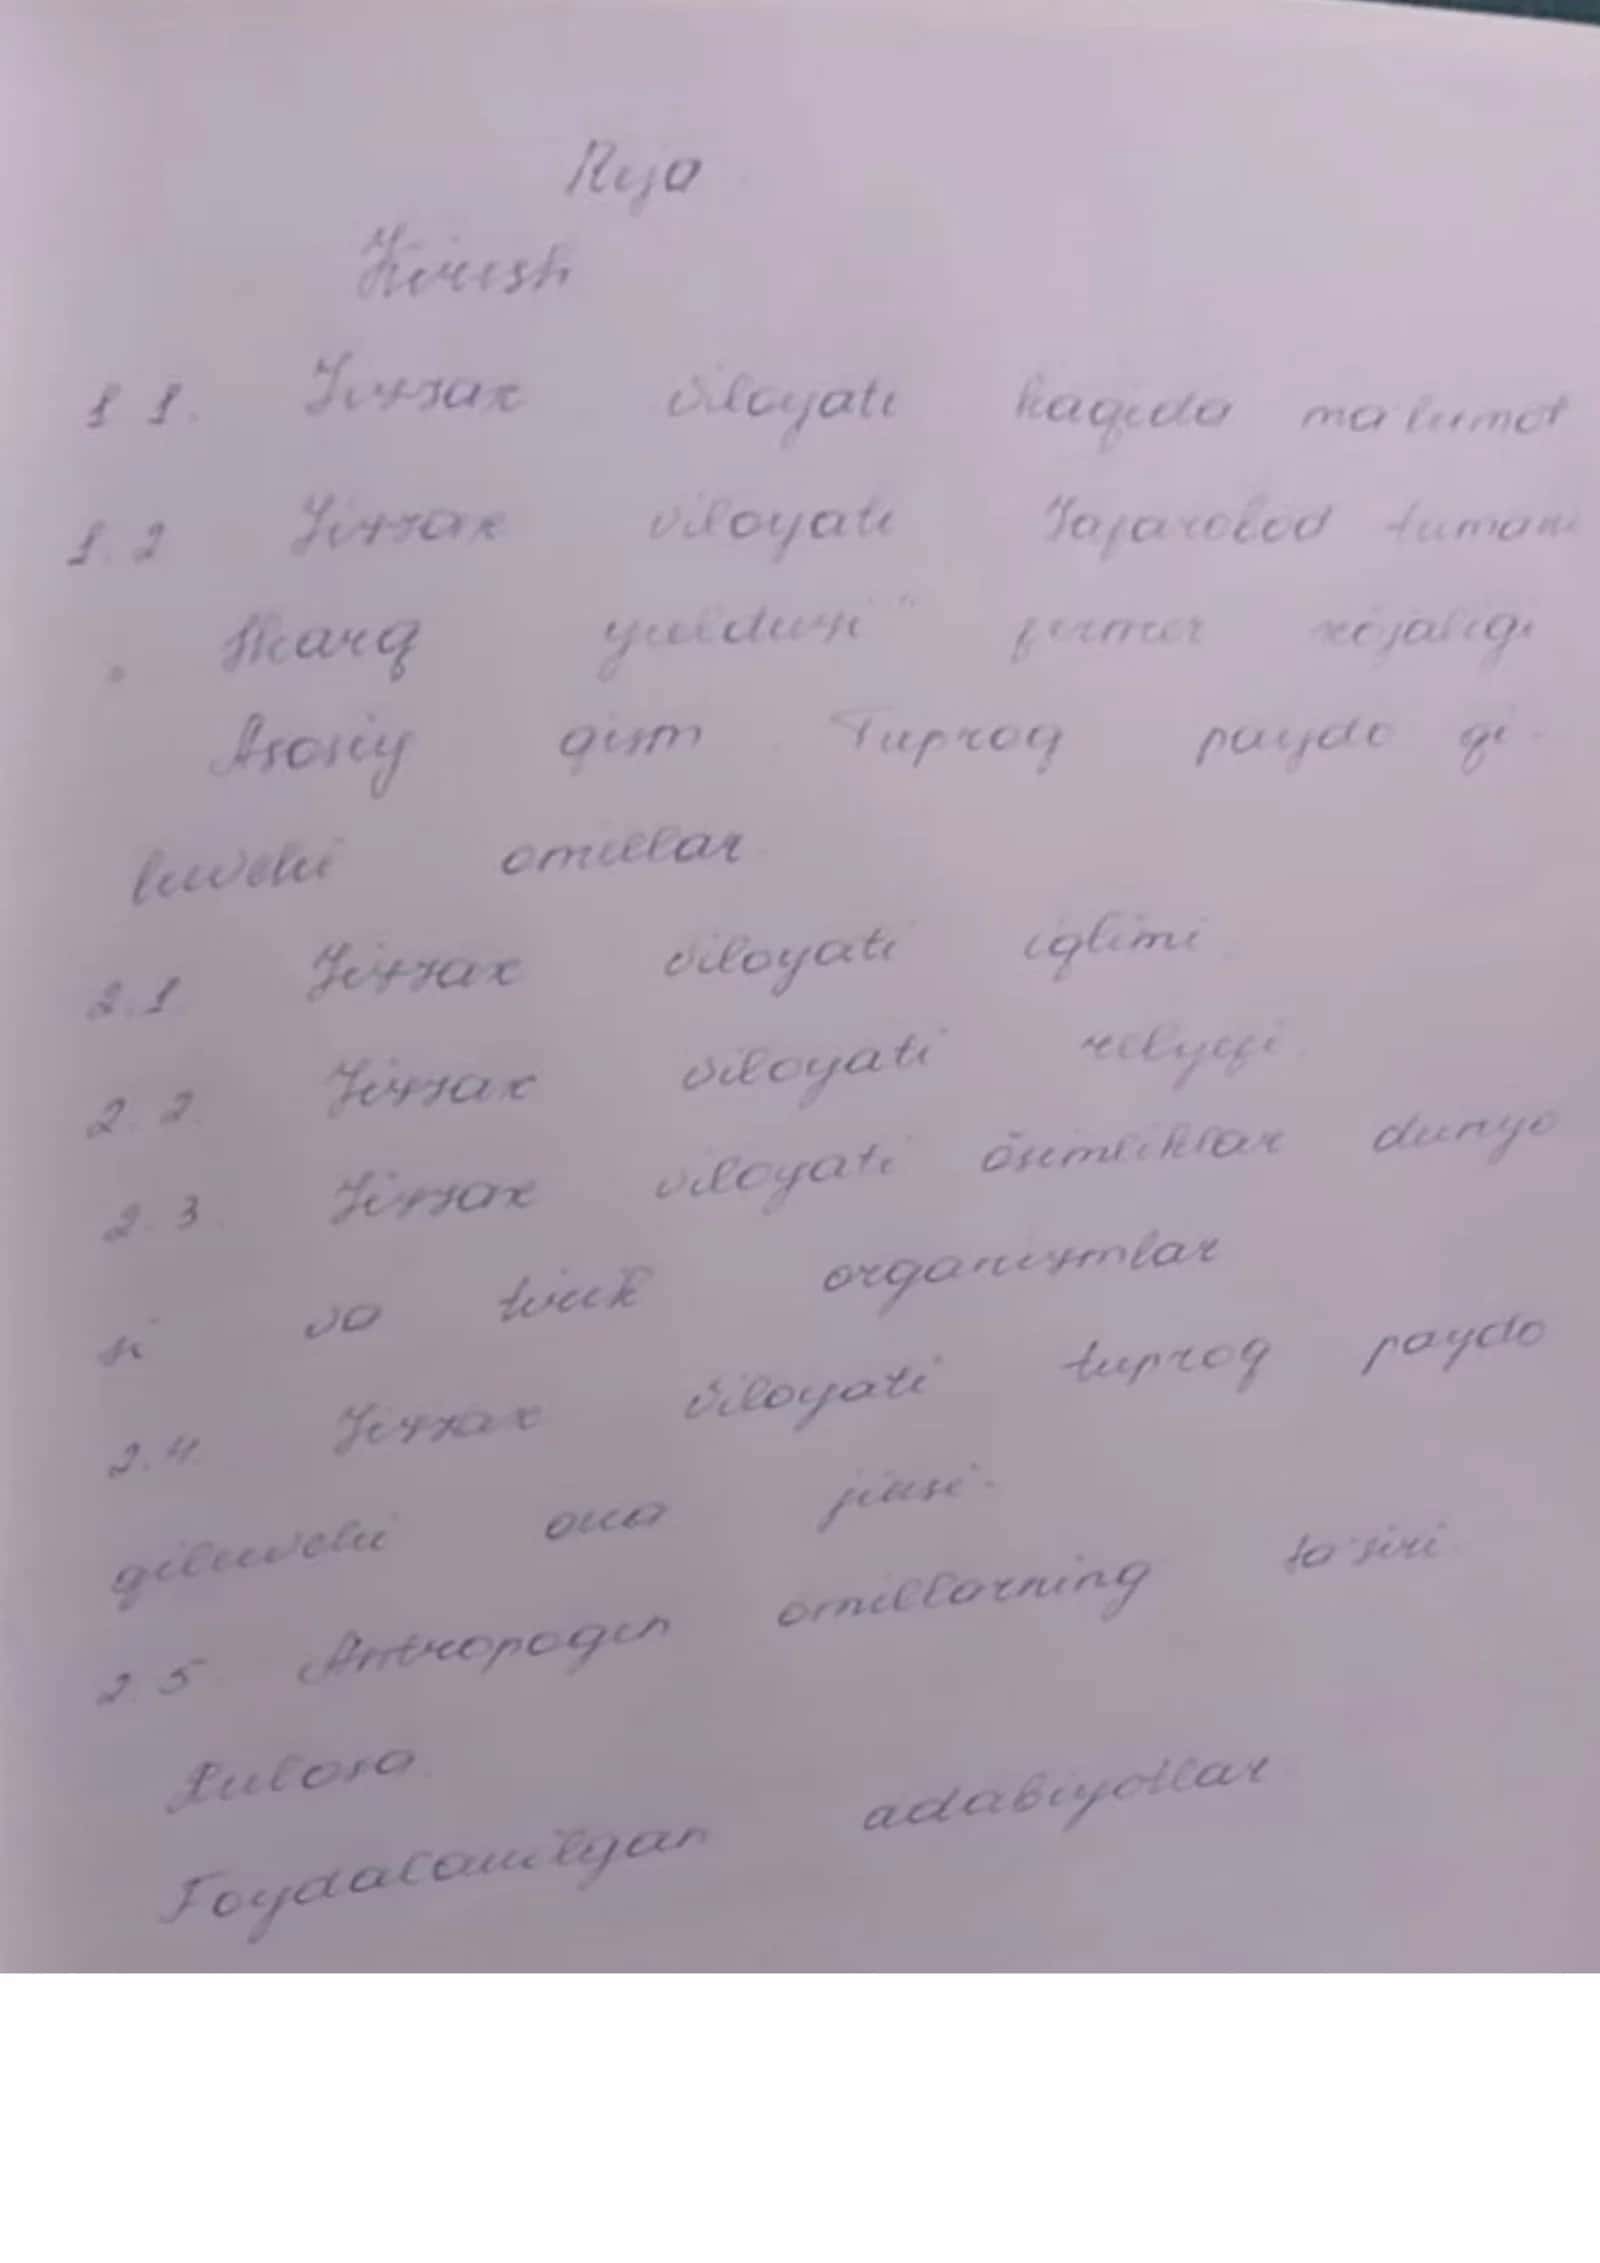 Reja
Kirish
1.1. Jizzax viloyati haqida ma'lumot
1.2 Jizzax viloyati Zafarobod tumani
"Sharq yulduzi" fermer xo'jaligi
Asosiy qism. Tuproq paydo qi-
luvchi omillar
2.1 Jizzax viloyati iqlimi
2.2. Jizzax viloyati relyefi
2.3. Jizzax viloyati õsimliklar dunyo
si va tirik organizmlar
2.4. Jizzax viloyati tuproq paydo
qiluvchi ona jinsi.
2.5 Antropogen omillarning ta'siri
Xulosa
Foydalanilgan adabiyotlar